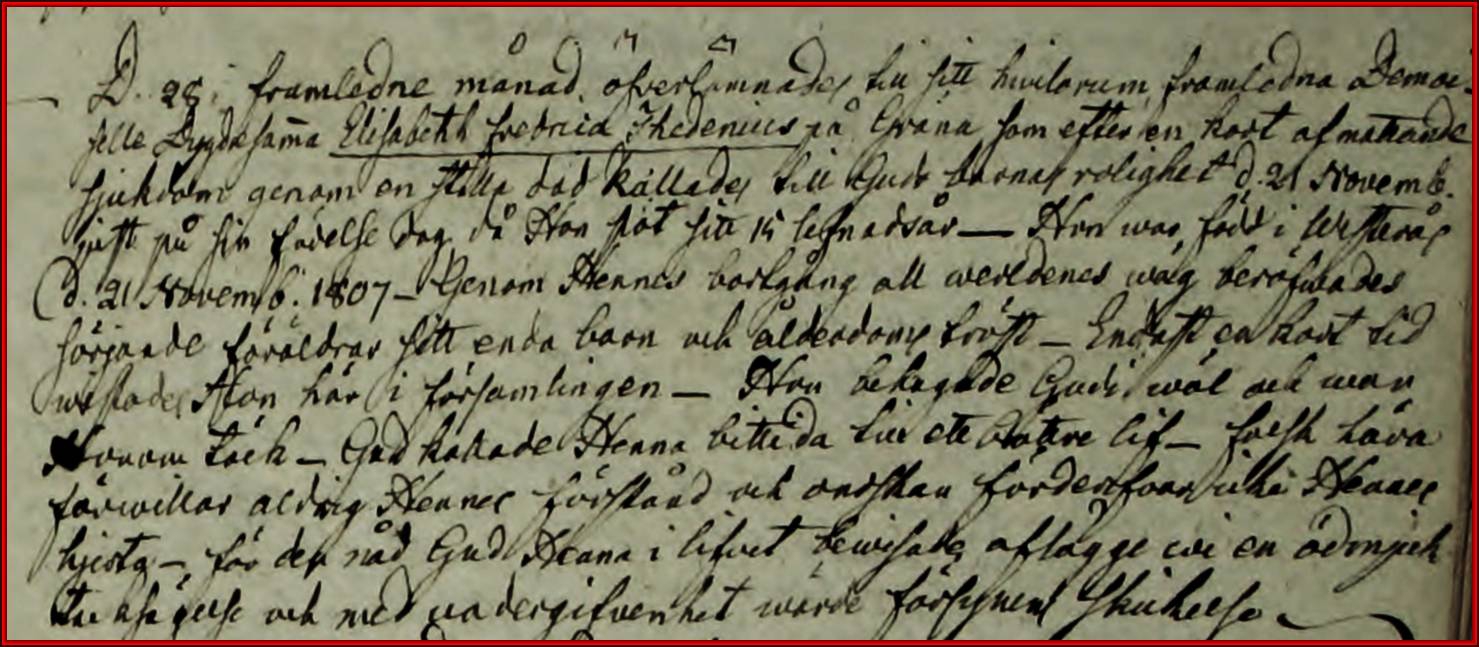 D. 28 i framledne månad, öfverlämnades till sitt hvilorum framledna Demoi-
selle Dygdesamma Elisabeth Fredrica Thedenius på Gräna som efter en kort afmattande
sjukdom genom en stilla död kallades till Guds barnas rolighet d. 21 Novemb.
just på sin födelse dag då Hon slöt sitt 15 lefnadsår — Hon war född i Westerås
d. 21 Novemb. 1807 — Genom Hennes bortgång all werldenes wäg beröfwades
sörjande föräldrar sitt enda barn och ålderdoms tröst — Endast en kort tid
wistades Hon här i församlingen — Hon behagade Gudi wäl och war
Honom täck — Gud kallade Henna bittida till ett bättre lif — falsk lära
förwillar aldrig Hennes förstånd och ondskan förderfwar icke Hennes
hjerta —, för den nåd Gud Henna i lifvet bewisade aflägge wi en ödmjuk
tacksägelse och med undergifvenhet wörde försynens skickelse —